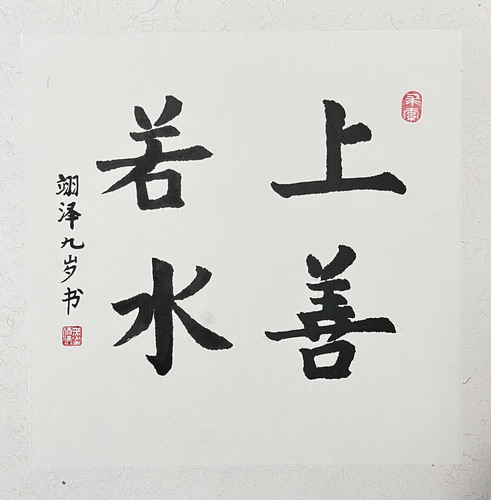 上善
若水
翊泽九岁书